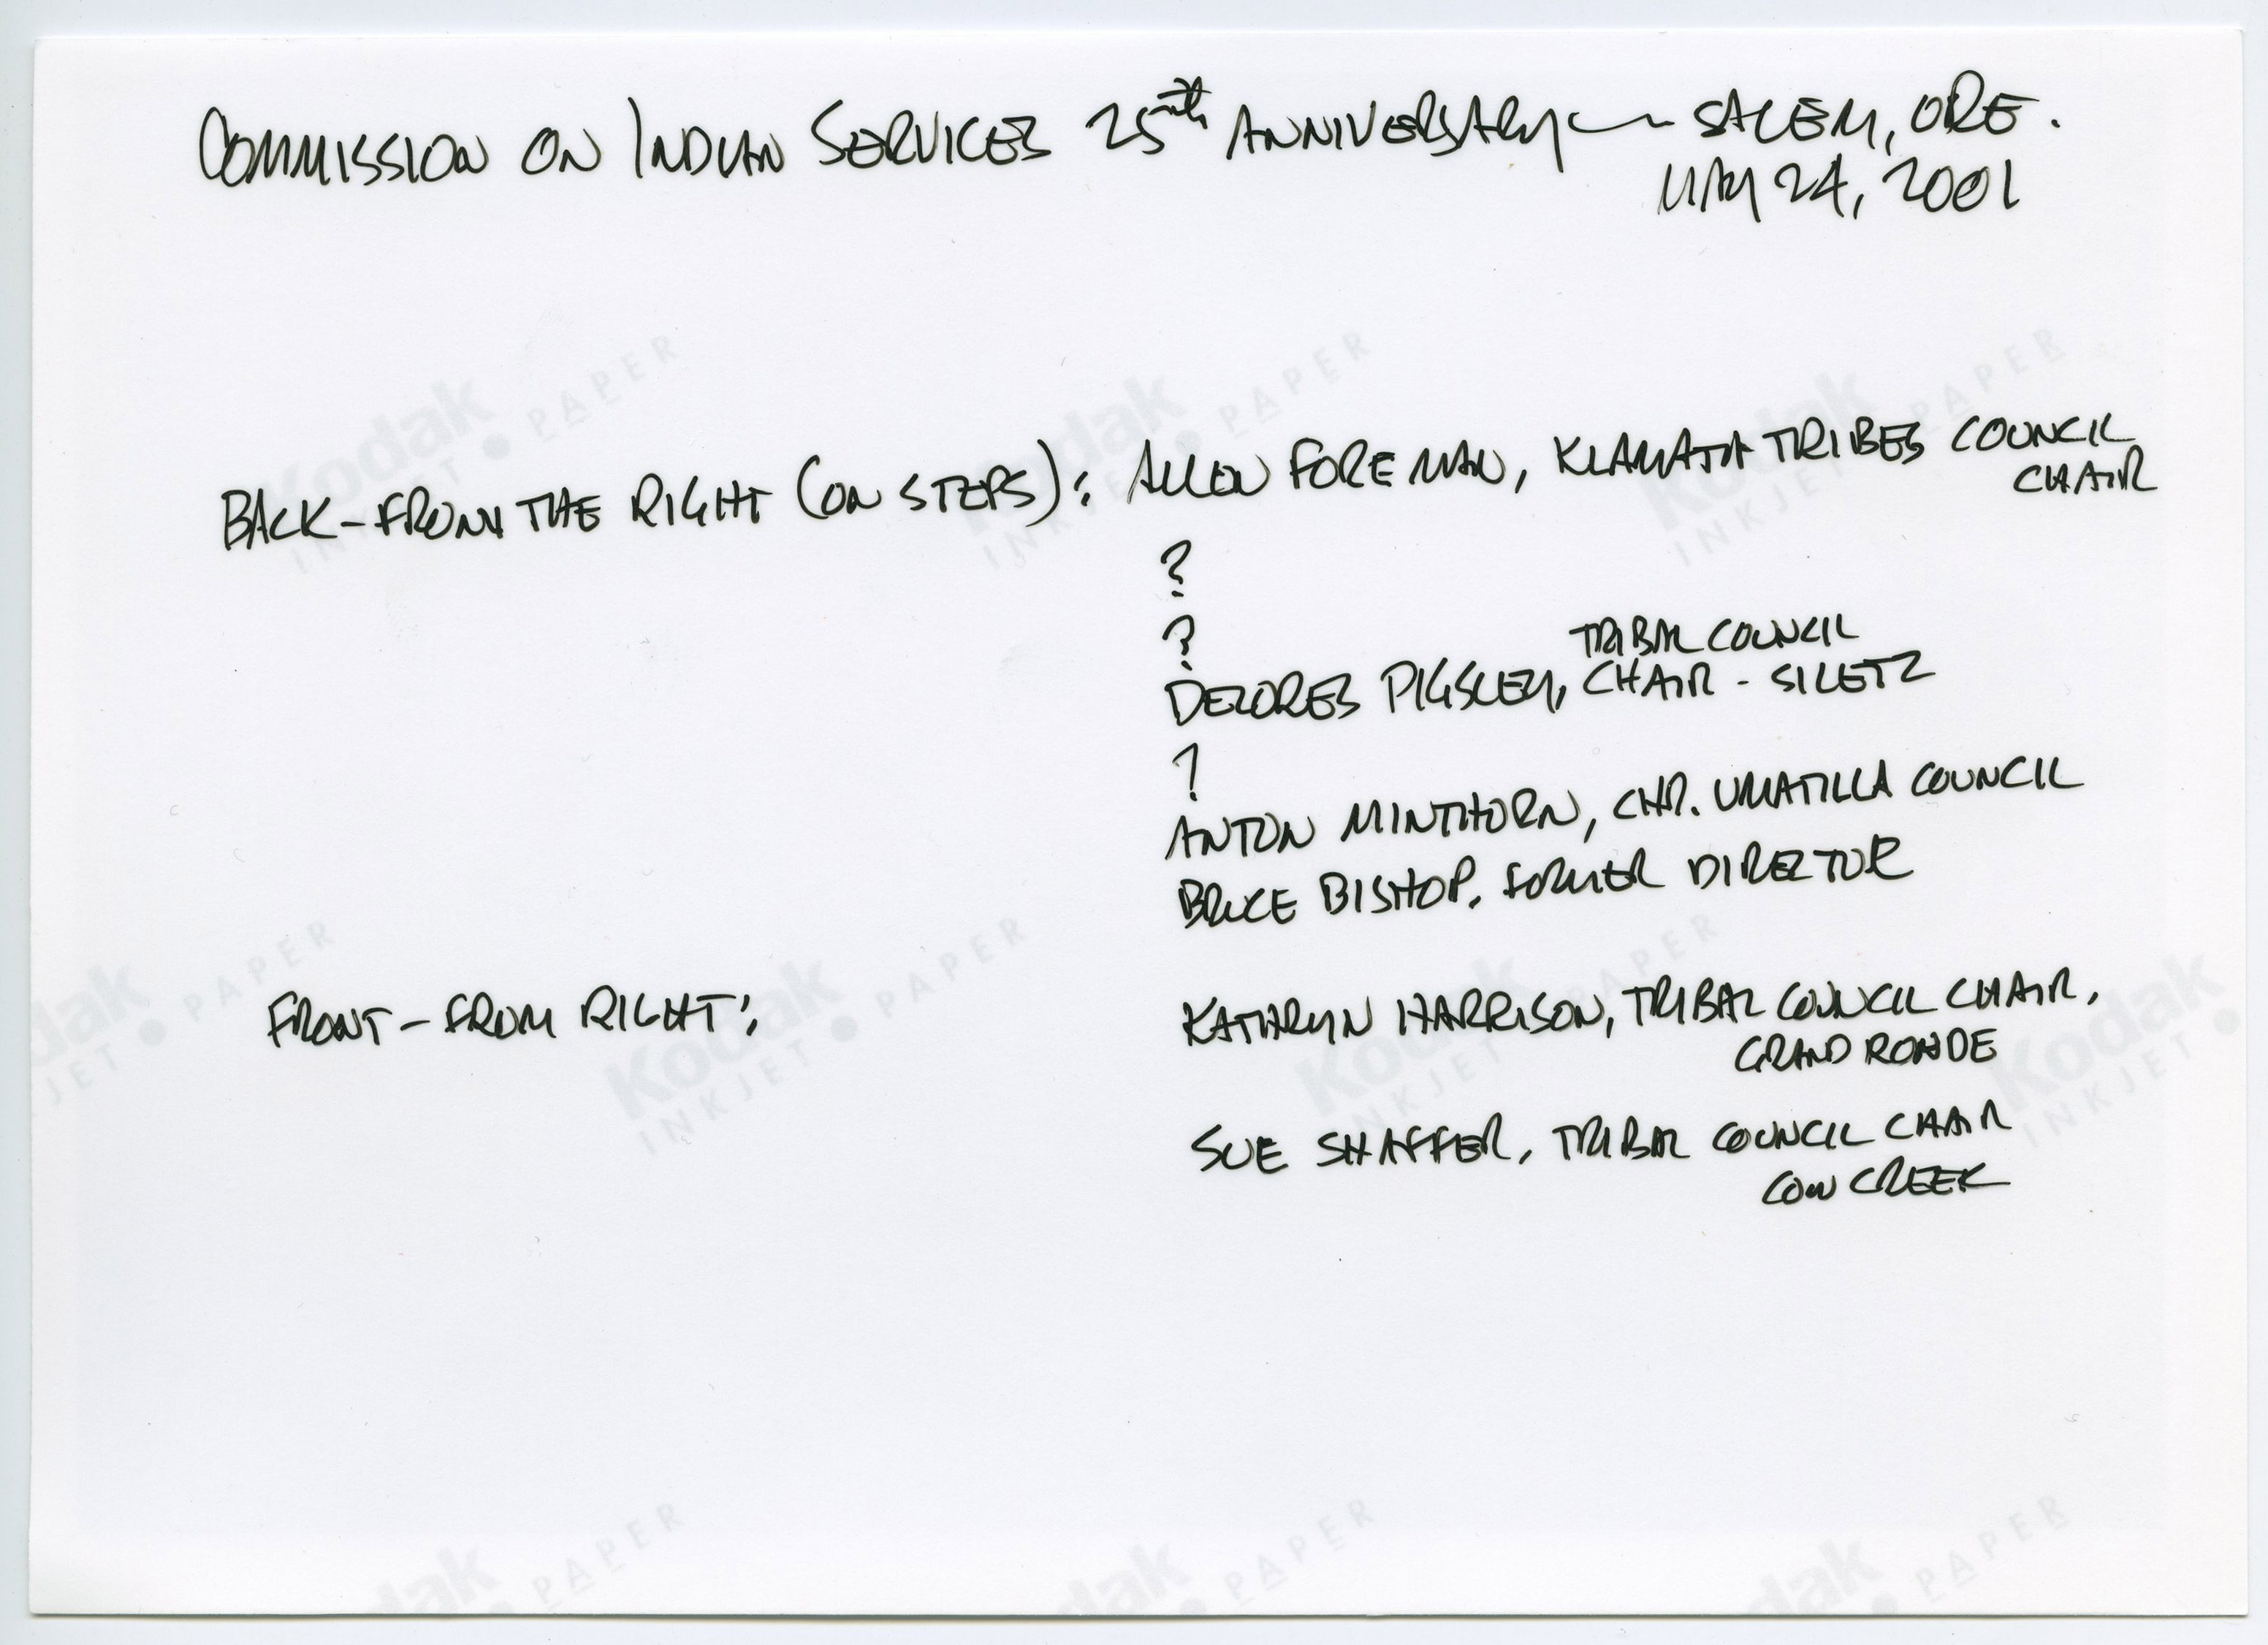 COMMISSION ON INDIAN SERVICES 25th ANNIVERSARY — SALEM, ORE.
MAY 24, 2001
BACK-FROM THE RIGHT (ON STEPS): ALLEN FOREMAN, KLAMATH TRIBES COUNCIL
CHAIR
?
?
TRIBAL COUNCIL
DELORES PIGSLEY, CHAIR - SILETZ
?
ANTON MINTHORN, CHR. UMATILLA COUNCIL
BRUCE BISHOP, FORMER DIRECTOR
FRONT-FROM RIGHT:
KATHRYN HARRISON, TRIBAL COUNCIL CHAIR,
GRAND RONDE
SUE SHAFFER, TRIBAL COUNCIL CHAIR
COW CREEK
Kodak
INKJET • PAPER